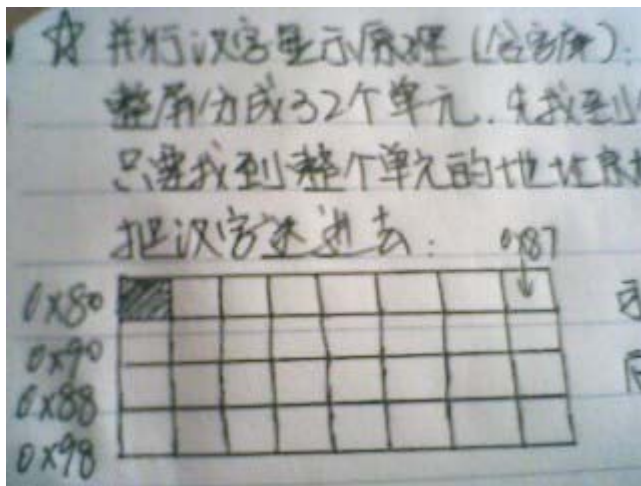 ☆ 并行汉字显示原理(含字库):
整屏分成32个单元.先找到
只要找到整个单元的地址
把汉字送进去:
0x87
0x80
0x90
0x88
0x98